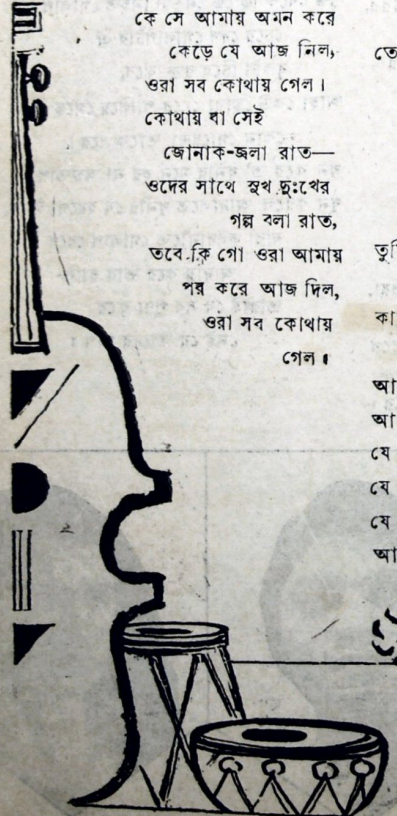 কে সে আমায় অমন করে
কেড়ে যে আজ নিল,
ওরা সব কোথায় গেল।
কোথায় বা সেই
জোনাক-জলা রাত—
ওদের সাথে সুখ দুঃখের
গল্প বলা রাত,
তবে কি গো ওরা আমায়
পর করে আজ দিল,
ওরা সব কোথায়
গেল।
তে
তুমি
কা
আ
আ
যে
যে
যে
আ